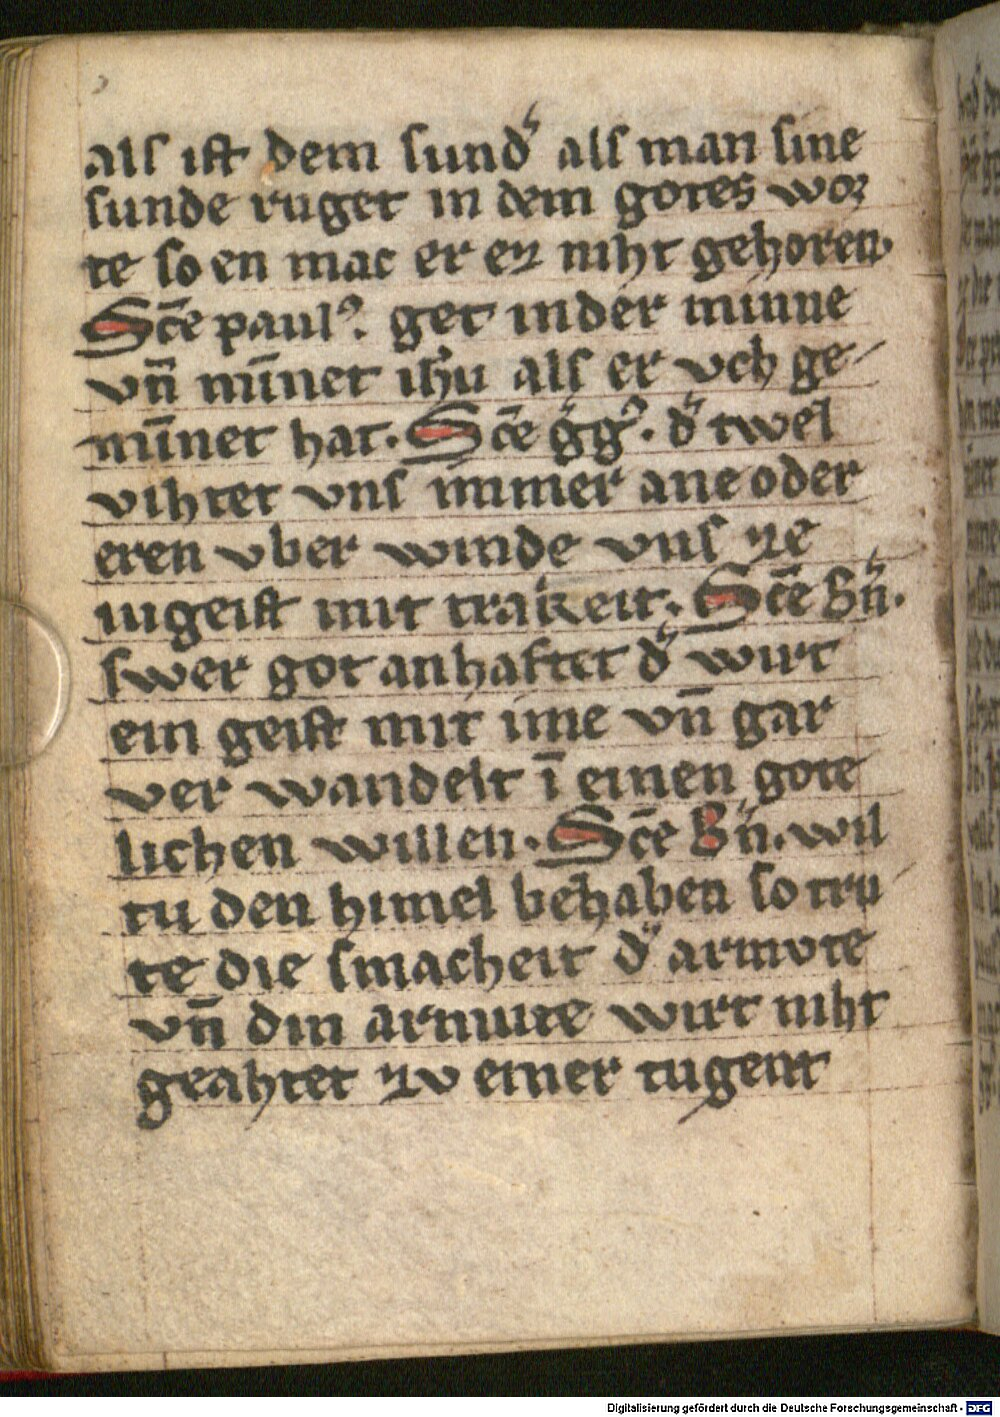 als ist dem sund͛ als man sine
sunde ruget in dem gotes wor
te so en mac er ez niht gehoren.
Sc̄e paulꝰ. get in der minne
vn̄ mīnet ih̄u als er vch ge-
mīnet hat. Sc̄e ḡgꝰ. d͛ twel
vihtet vns immer ane oder
eren vber winde vns ze
iu geist mit trakeit. Sc̄e bn̄.
swer got an haftet d͛ wirt
ein geist mit ime vn̄ gar
ver wandelt ī einen gote
lichen willen. Sc̄e Bn̄. wil
tu den himel behaben so tru
te die smacheit d͛ armvte
vn̄ din armute wirt niht
geahtet zv einer tugent
Digitalisierung gefördert durch die Deutsche Forschungsgemeinschaft - DFG